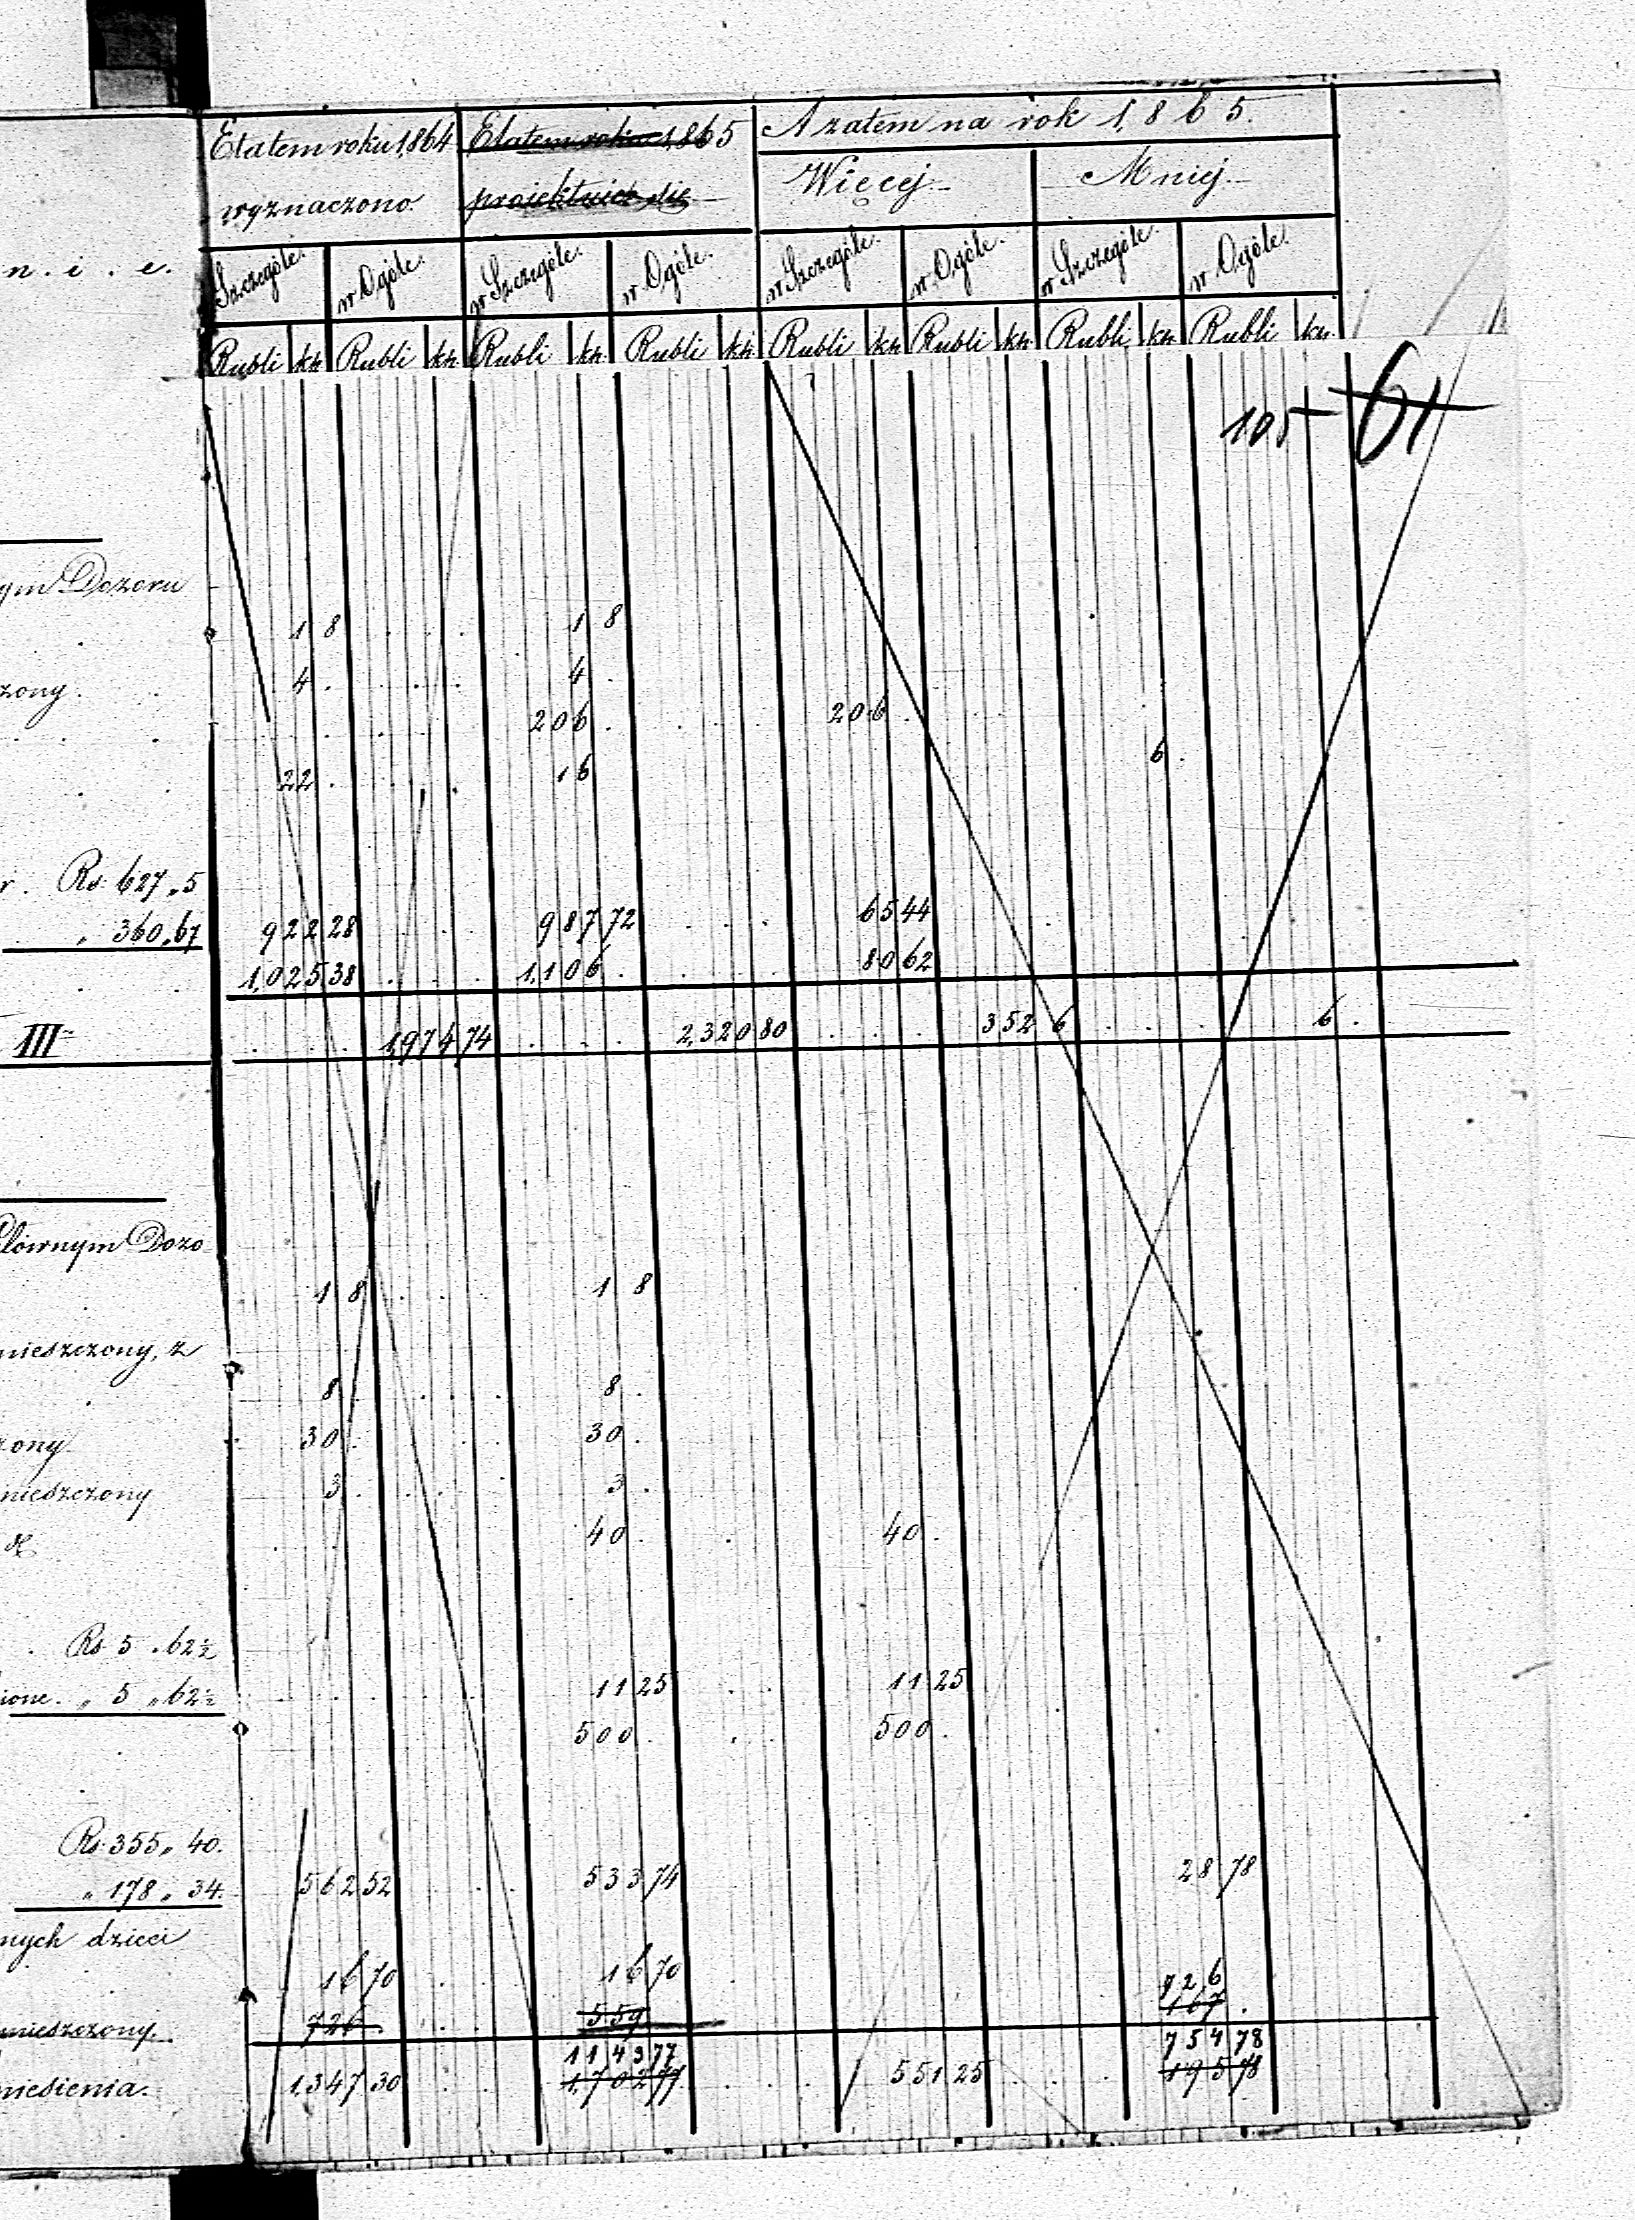 Etatem roku 1,864 Etatem roku 1,865 A zatem na rok 1,865.
wyznaczono. projektuie się Więcej Mniej
n. i. e. Szczególe. w Ogóle. w Szczególe. w Ogóle. w Szczególe. w Ogóle. w Szczególe. w Ogóle.
Rubli kn Rubli kn Rubli kn. Rubli kn Rubli kn Rubli kn Rubli kn Rubli kn.
105 61
ym Dozoru
1 8 . . . 1 8
zony. 4 . . . . 4 .
. . . . . 206 . . . . 206 .
22 . . . . 16 6 .
r. Rs. 627 „ 5
„ 360 „ 67 922 28 . . . 987 72 . . . 65 44
1,025 38 . . . 1,106 . . . . 80 62
III . . . 1,974 74 . . . 2,320 80 . . . 352 6 . . . 6 .
Głównym Dozo
1 8 . . . 1 8
mieszczony, z
8 . . . . 8 .
zony 30 . . . . 30 .
mieszczony 3 . . . . 3 .
. . 40 . . 40 .
. Rs 5 „ 62½
ione. „ 5 „ 62½ . . . . . 11 25 . . 11 25
500 . . . 500 .
Rs. 355 „ 40.
„ 178 „ 34. 562 52 . . . 533 74 28 78
nych dzieci
16 70 . . 16 70 .
726
mieszczony. 726 . . . 559 167 .
1143 77 754 78
niesienia. 1,347 30 . . 1,702 77 . . . 551 25 . . . 195 78